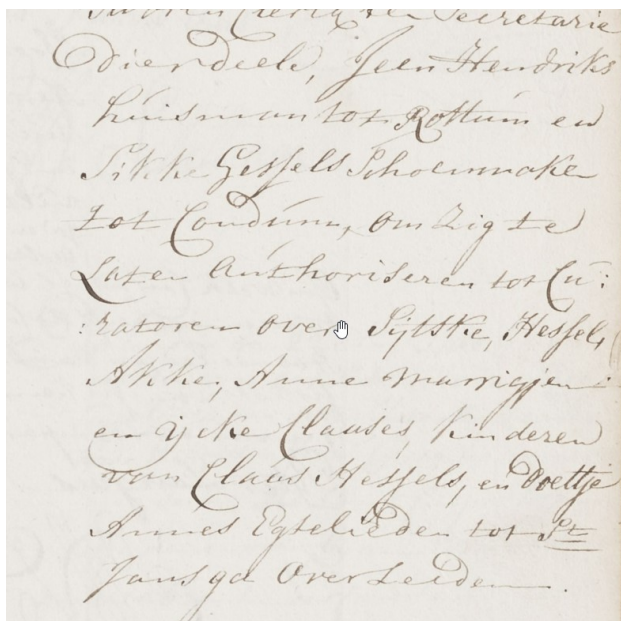 Secretarie
dier deele, Jeen Hendriks
huisman tot Rottum en
Sikke Gessels Schoenmake
tot Joudum, om zig te
Laten Authoriseren tot Cu:
:ratoren over Sijtske, Hessel,
Akke, Anne Marrigjen
en ijcke Clauses, kinderen
van Claas Hessels, en Doettje
Annes Egtelieden tot St
Jansga Overleeden.